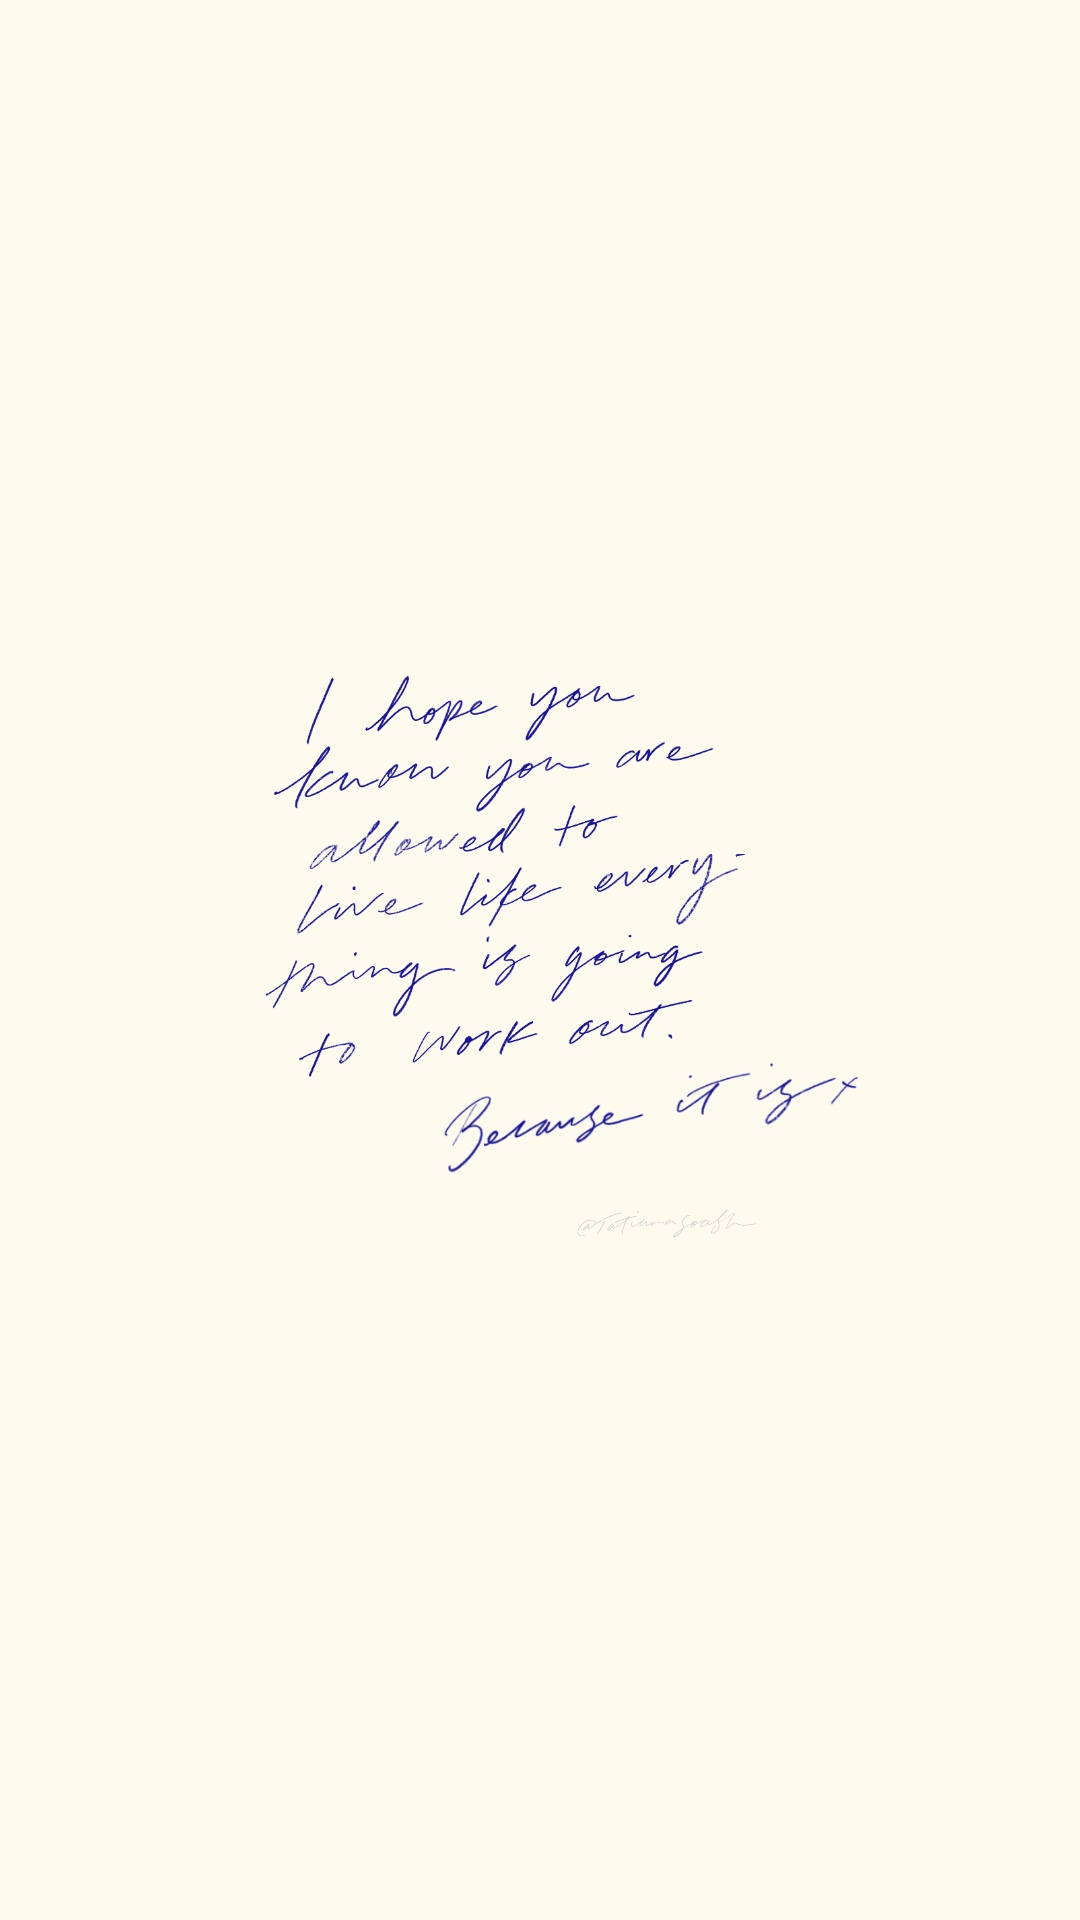 I hope you
know you are
allowed to
live life every-
thing is going
to work out.
Because it is x